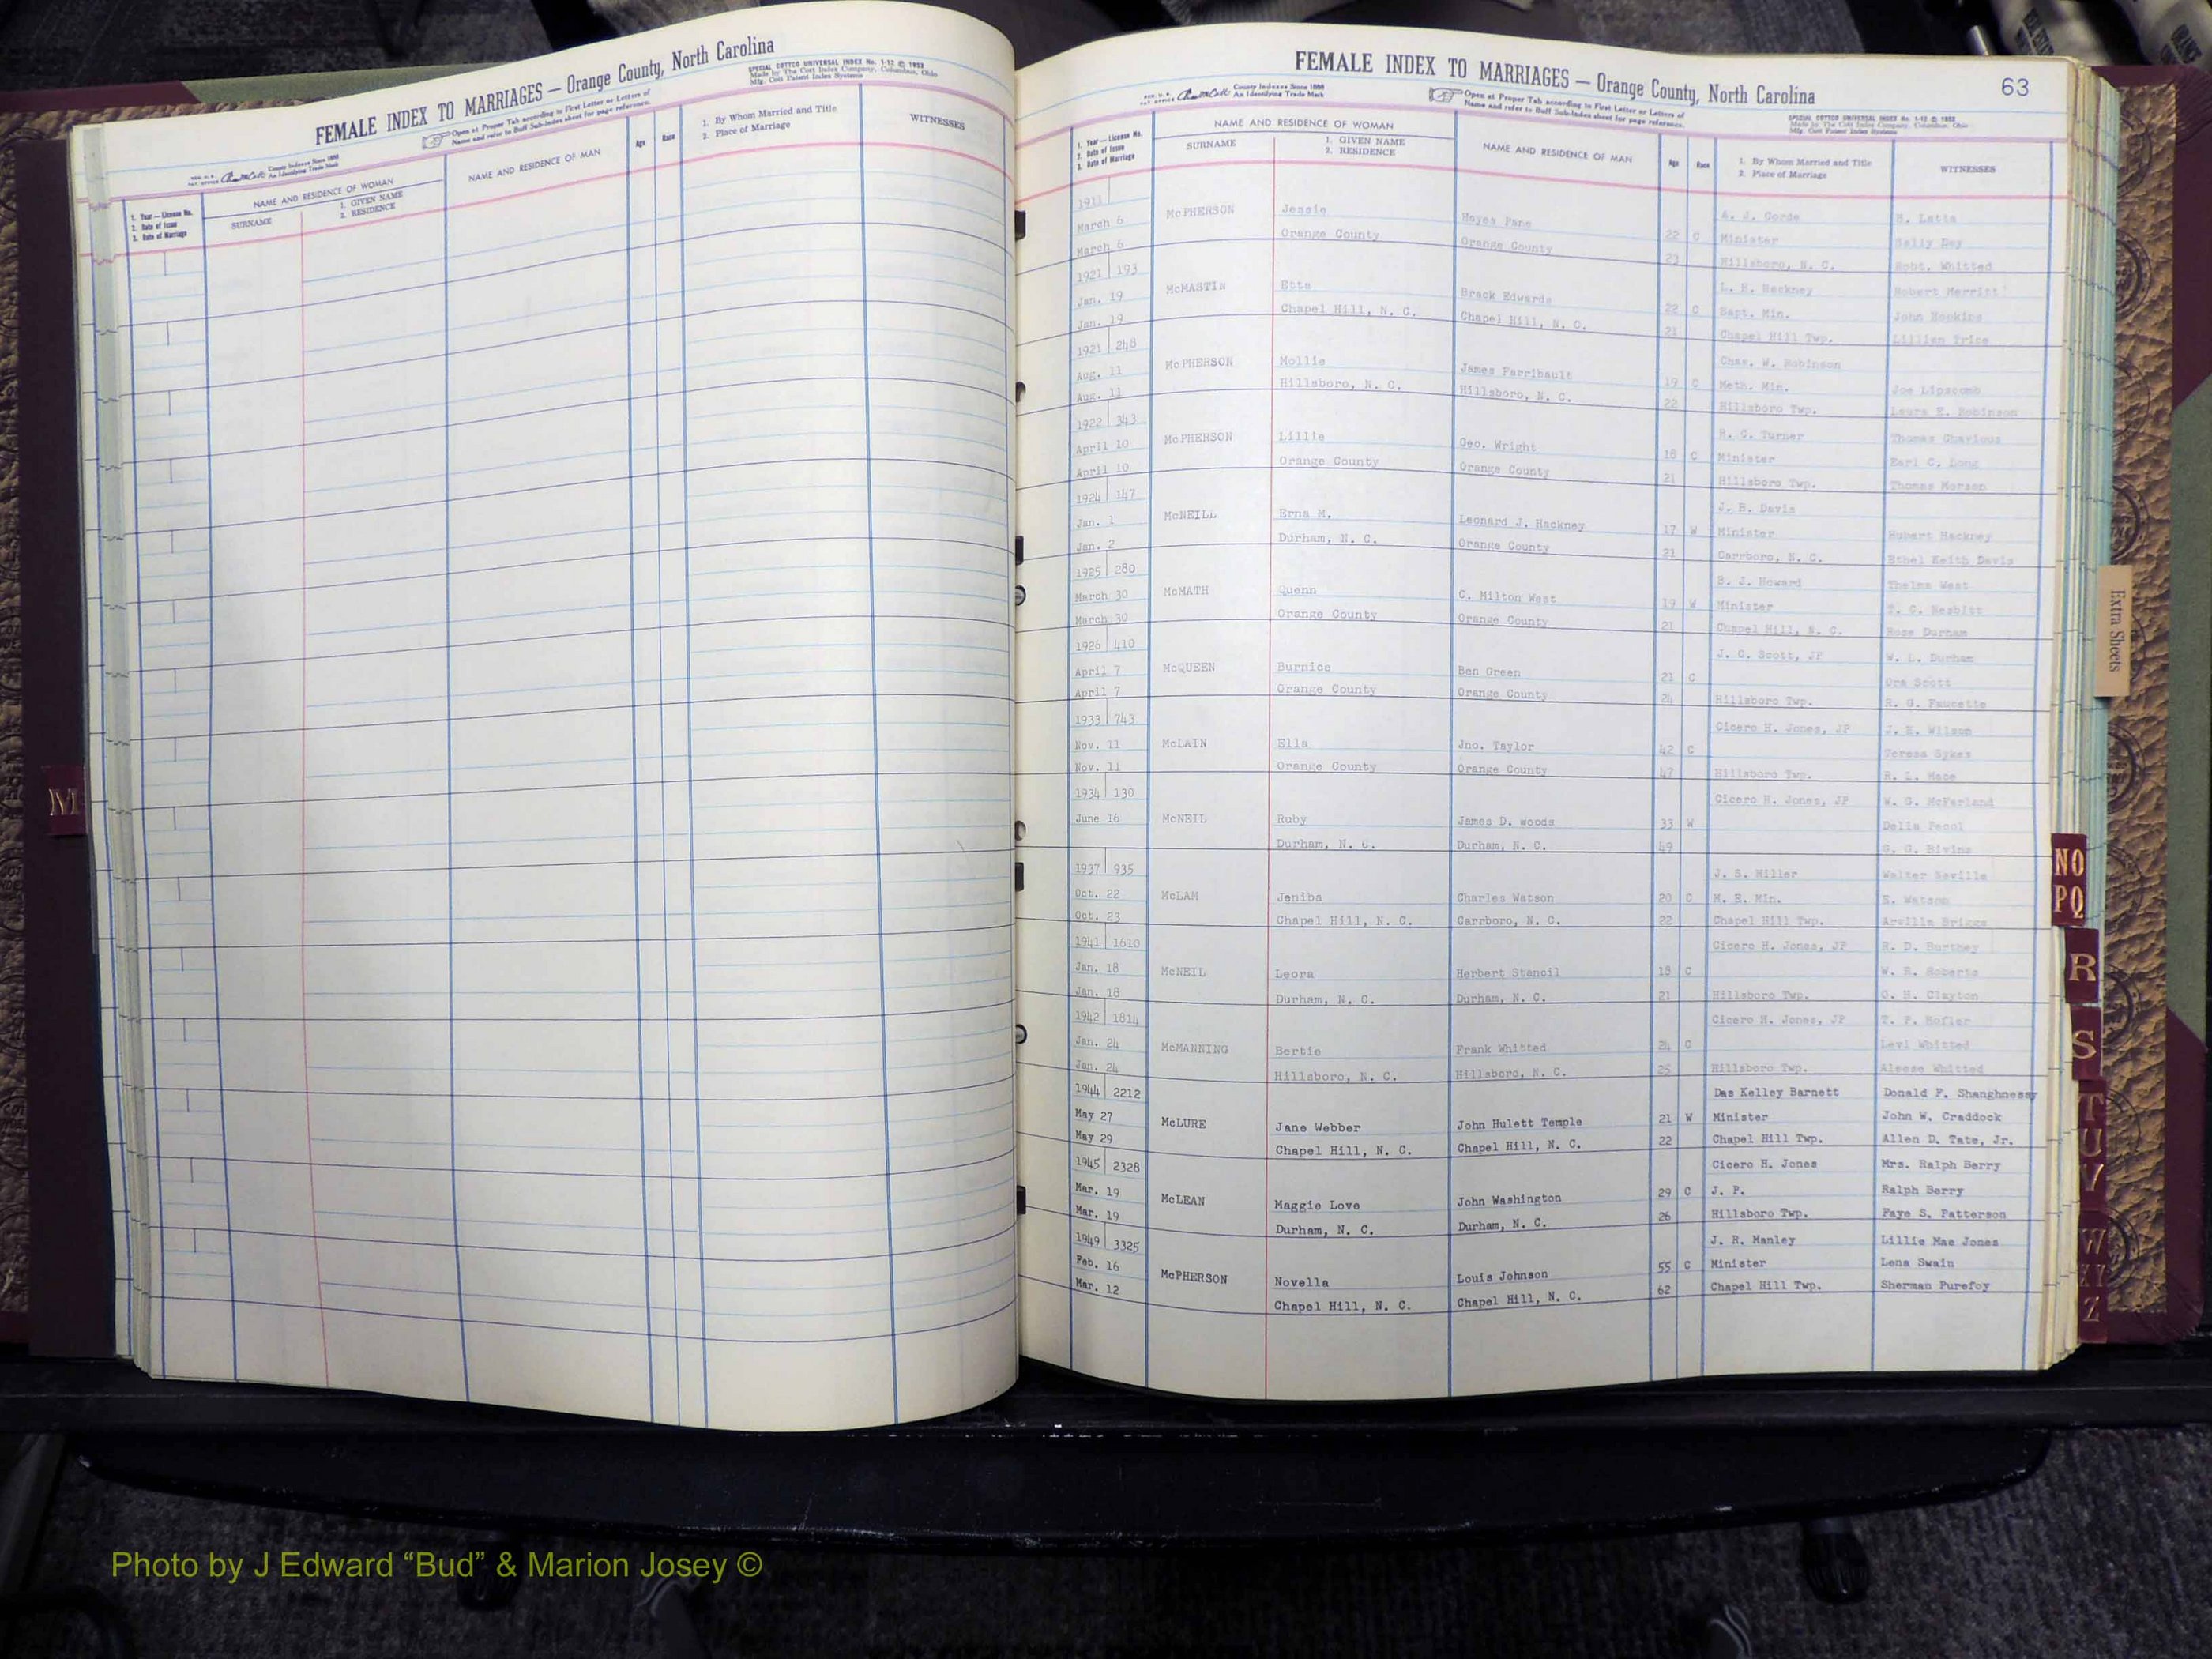 FEMALE INDEX TO MARRIAGES — Orange County, North Carolina
SPECIAL COTTCO UNIVERSAL INDEX No. 1-12 © 1953
Made by The Cott Index Company, Columbus, Ohio
Mfg. Cott Patent Index Systems
Open at Proper Tab according to First Letter or Letters of
Name and refer to Buff Sub-Index sheet for page reference.
County Indexes Since 1888
An Identifying Trade Mark
1. Year — License No.
2. Date of Issue
3. Date of Marriage
NAME AND RESIDENCE OF WOMAN
SURNAME
1. GIVEN NAME
2. RESIDENCE
NAME AND RESIDENCE OF MAN
Age
Race
1. By Whom Married and Title
2. Place of Marriage
WITNESSES
FEMALE INDEX TO MARRIAGES — Orange County, North Carolina
63
County Indexes Since 1888
An Identifying Trade Mark
Open at Proper Tab according to First Letter or Letters of
Name and refer to Buff Sub-Index sheet for page reference.
SPECIAL COTTCO UNIVERSAL INDEX No. 1-12 © 1953
Made by The Cott Index Company, Columbus, Ohio
Mfg. Cott Patent Index Systems
1. Year — License No.
2. Date of Issue
3. Date of Marriage
NAME AND RESIDENCE OF WOMAN
SURNAME
1. GIVEN NAME
2. RESIDENCE
NAME AND RESIDENCE OF MAN
Age
Race
1. By Whom Married and Title
2. Place of Marriage
WITNESSES
1911 H. Latta
March 6 McPHERSON Jessie Hayes Pane 22 C Minister Sally Day
March 6 Orange County Orange County 23 Hillsboro, N. C. Robt. Whitted
1921 193 L. H. Hackney Robert Merritt
Jan. 19 McMASTIN Etta Brack Edwards 22 C Bapt. Min. John Hopkins
Jan. 19 Chapel Hill, N. C. Chapel Hill, N. C. 21 Chapel Hill Twp. Lillian Price
1921 248 Chas. W. Robinson
Aug. 11 McPHERSON Mollie James Farribault 19 C Meth. Min. Joe Lipscomb
Aug. 11 Hillsboro, N. C. Hillsboro, N. C. 22 Hillsboro Twp. Laura E. Robinson
1922 343 R. C. Turner Thomas Chavious
April 10 McPHERSON Lillie Geo. Wright 18 C Minister Earl C. Long
April 10 Orange County Orange County 21 Hillsboro Twp. Thomas Morson
1924 147 J. B. Davis
Jan. 1 McNEILL Erna M. Leonard J. Hackney 17 W Minister Hubert Hackney
Jan. 2 Durham, N. C. Orange County 21 Carrboro, N. C. Ethel Keith Davis
1925 280 B. J. Howard Thelma West
March 30 McMATH Quenn C. Milton West 19 W Minister T. C. Nesbitt
March 30 Orange County Orange County 21 Chapel Hill, N. C. Rose Durham
1926 410 J. C. Scott, JP W. L. Durham
April 7 McQUEEN Burnice Ben Green 21 C Ora Scott
April 7 Orange County Orange County 24 Hillsboro Twp. R. G. Faucette
1933 743 Cicero H. Jones, JP J. E. Wilson
Nov. 11 McLAIN Ella Jno. Taylor 42 C Teresa Sykes
Nov. 11 Orange County Orange County 47 Hillsboro Twp. R. L. Mace
1934 130 Cicero H. Jones, JP W. G. McFarland
June 16 McNEIL Ruby James D. woods 33 W Della
Durham, N. C. Durham, N. C. 49 G. G. Bivins
1937 935 J. S. Hiller Walter Neville
Oct. 22 McLAM Jeniba Charles Watson 20 C M. E. Min. E. Watson
Oct. 23 Chapel Hill, N. C. Carrboro, N. C. 22 Chapel Hill Twp. Arvilla Briggs
1941 1610 Cicero H. Jones, JP R. D. Burthey
Jan. 18 McNEIL Leora Herbert Stancil 18 C W. R. Roberts
Jan. 18 Durham, N. C. Durham, N. C. 21 Hillsboro Twp. O. H. Clayton
1942 1814 Cicero H. Jones, JP T. P. Hofler
Jan. 24 McMANNING Bertie Frank Whitted 24 C Levi Whitted
Jan. 24 Hillsboro, N. C. Hillsboro, N. C. 25 Hillsboro Twp. Aleese Whitted
1944 2212 Das Kelley Barnett Donald F. Shanghnessy
May 27 McLURE Jane Webber John Hulett Temple 21 W Minister John W. Craddock
May 29 Chapel Hill, N. C. Chapel Hill, N. C. 22 Chapel Hill Twp. Allen D. Tate, Jr.
1945 2328 Cicero H. Jones Mrs. Ralph Berry
Mar. 19 McLEAN Maggie Love John Washington 29 C J. P. Ralph Berry
Mar. 19 Durham, N. C. Durham, N. C. 26 Hillsboro Twp. Faye S. Patterson
1949 3325 J. R. Manley Lillie Mae Jones
Feb. 16 McPHERSON Novella Louis Johnson 55 C Minister Lena Swain
Mar. 12 Chapel Hill, N. C. Chapel Hill, N. C. 62 Chapel Hill Twp. Sherman Purefoy
Extra Sheets
M
NO
PQ
R
S
T
U
V
W
XY
Z
Photo by J Edward “Bud” & Marion Josey ©